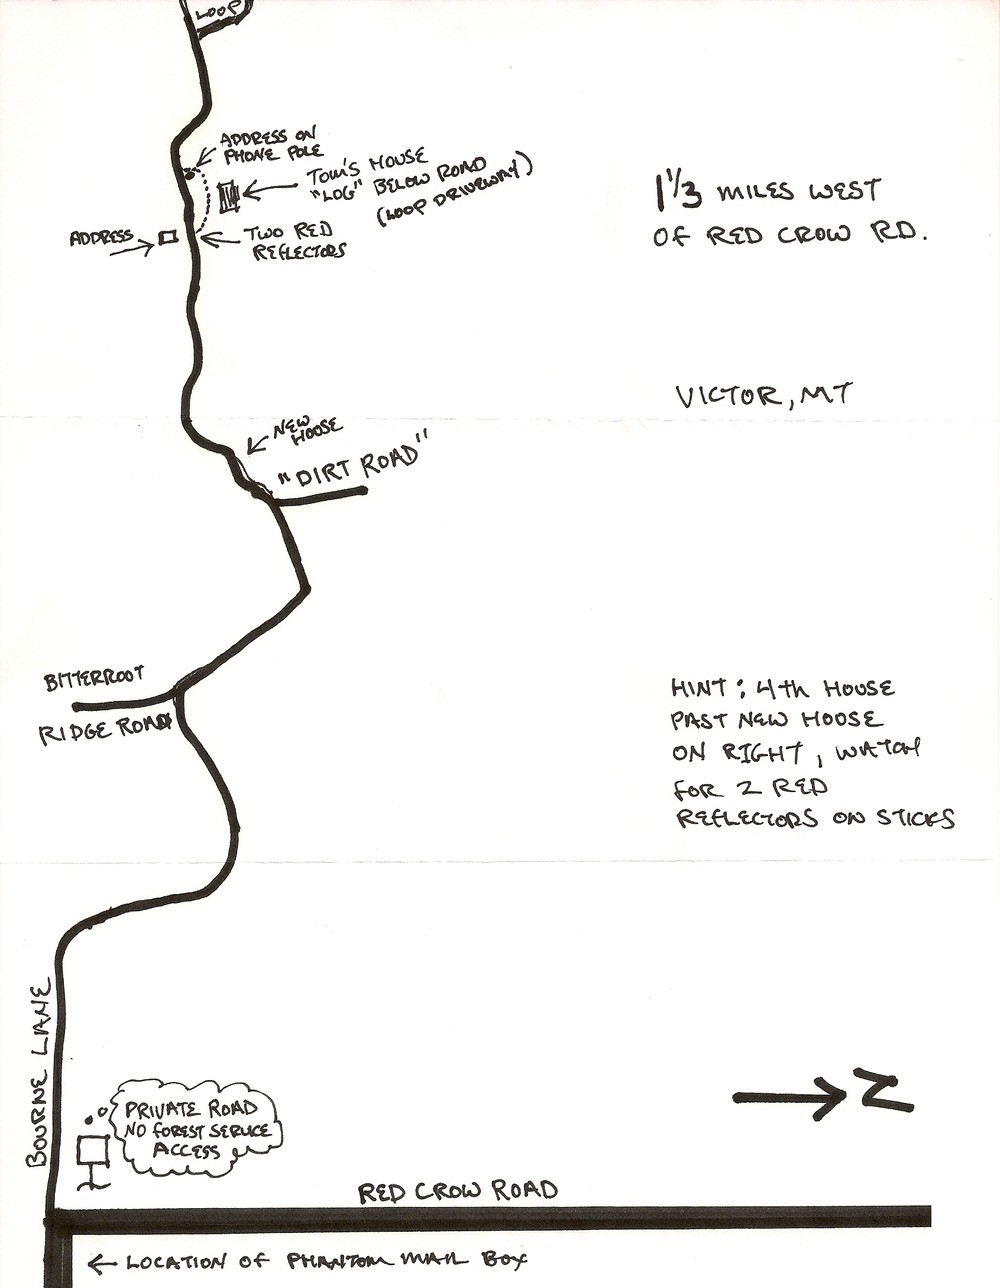 LOOP
ADDRESS ON
PHONE POLE
TOM'S HOUSE
"LOG" BELOW ROAD
(LOOP DRIVEWAY)
ADDRESS
TWO RED
REFLECTORS
1 1/3 MILES WEST
OF RED CROW RD.
VICTOR, MT
NEW
HOOSE
"DIRT ROAD"
BITTERROOT
RIDGE ROAD
HINT: 4th HOUSE
PAST NEW HOOSE
ON RIGHT, WATCH
FOR 2 RED
REFLECTORS ON STICKS
BOURNE LANE
PRIVATE ROAD
NO FOREST SERVICE
ACCESS
N
RED CROW ROAD
LOCATION OF PHANTOM MAIL BOX